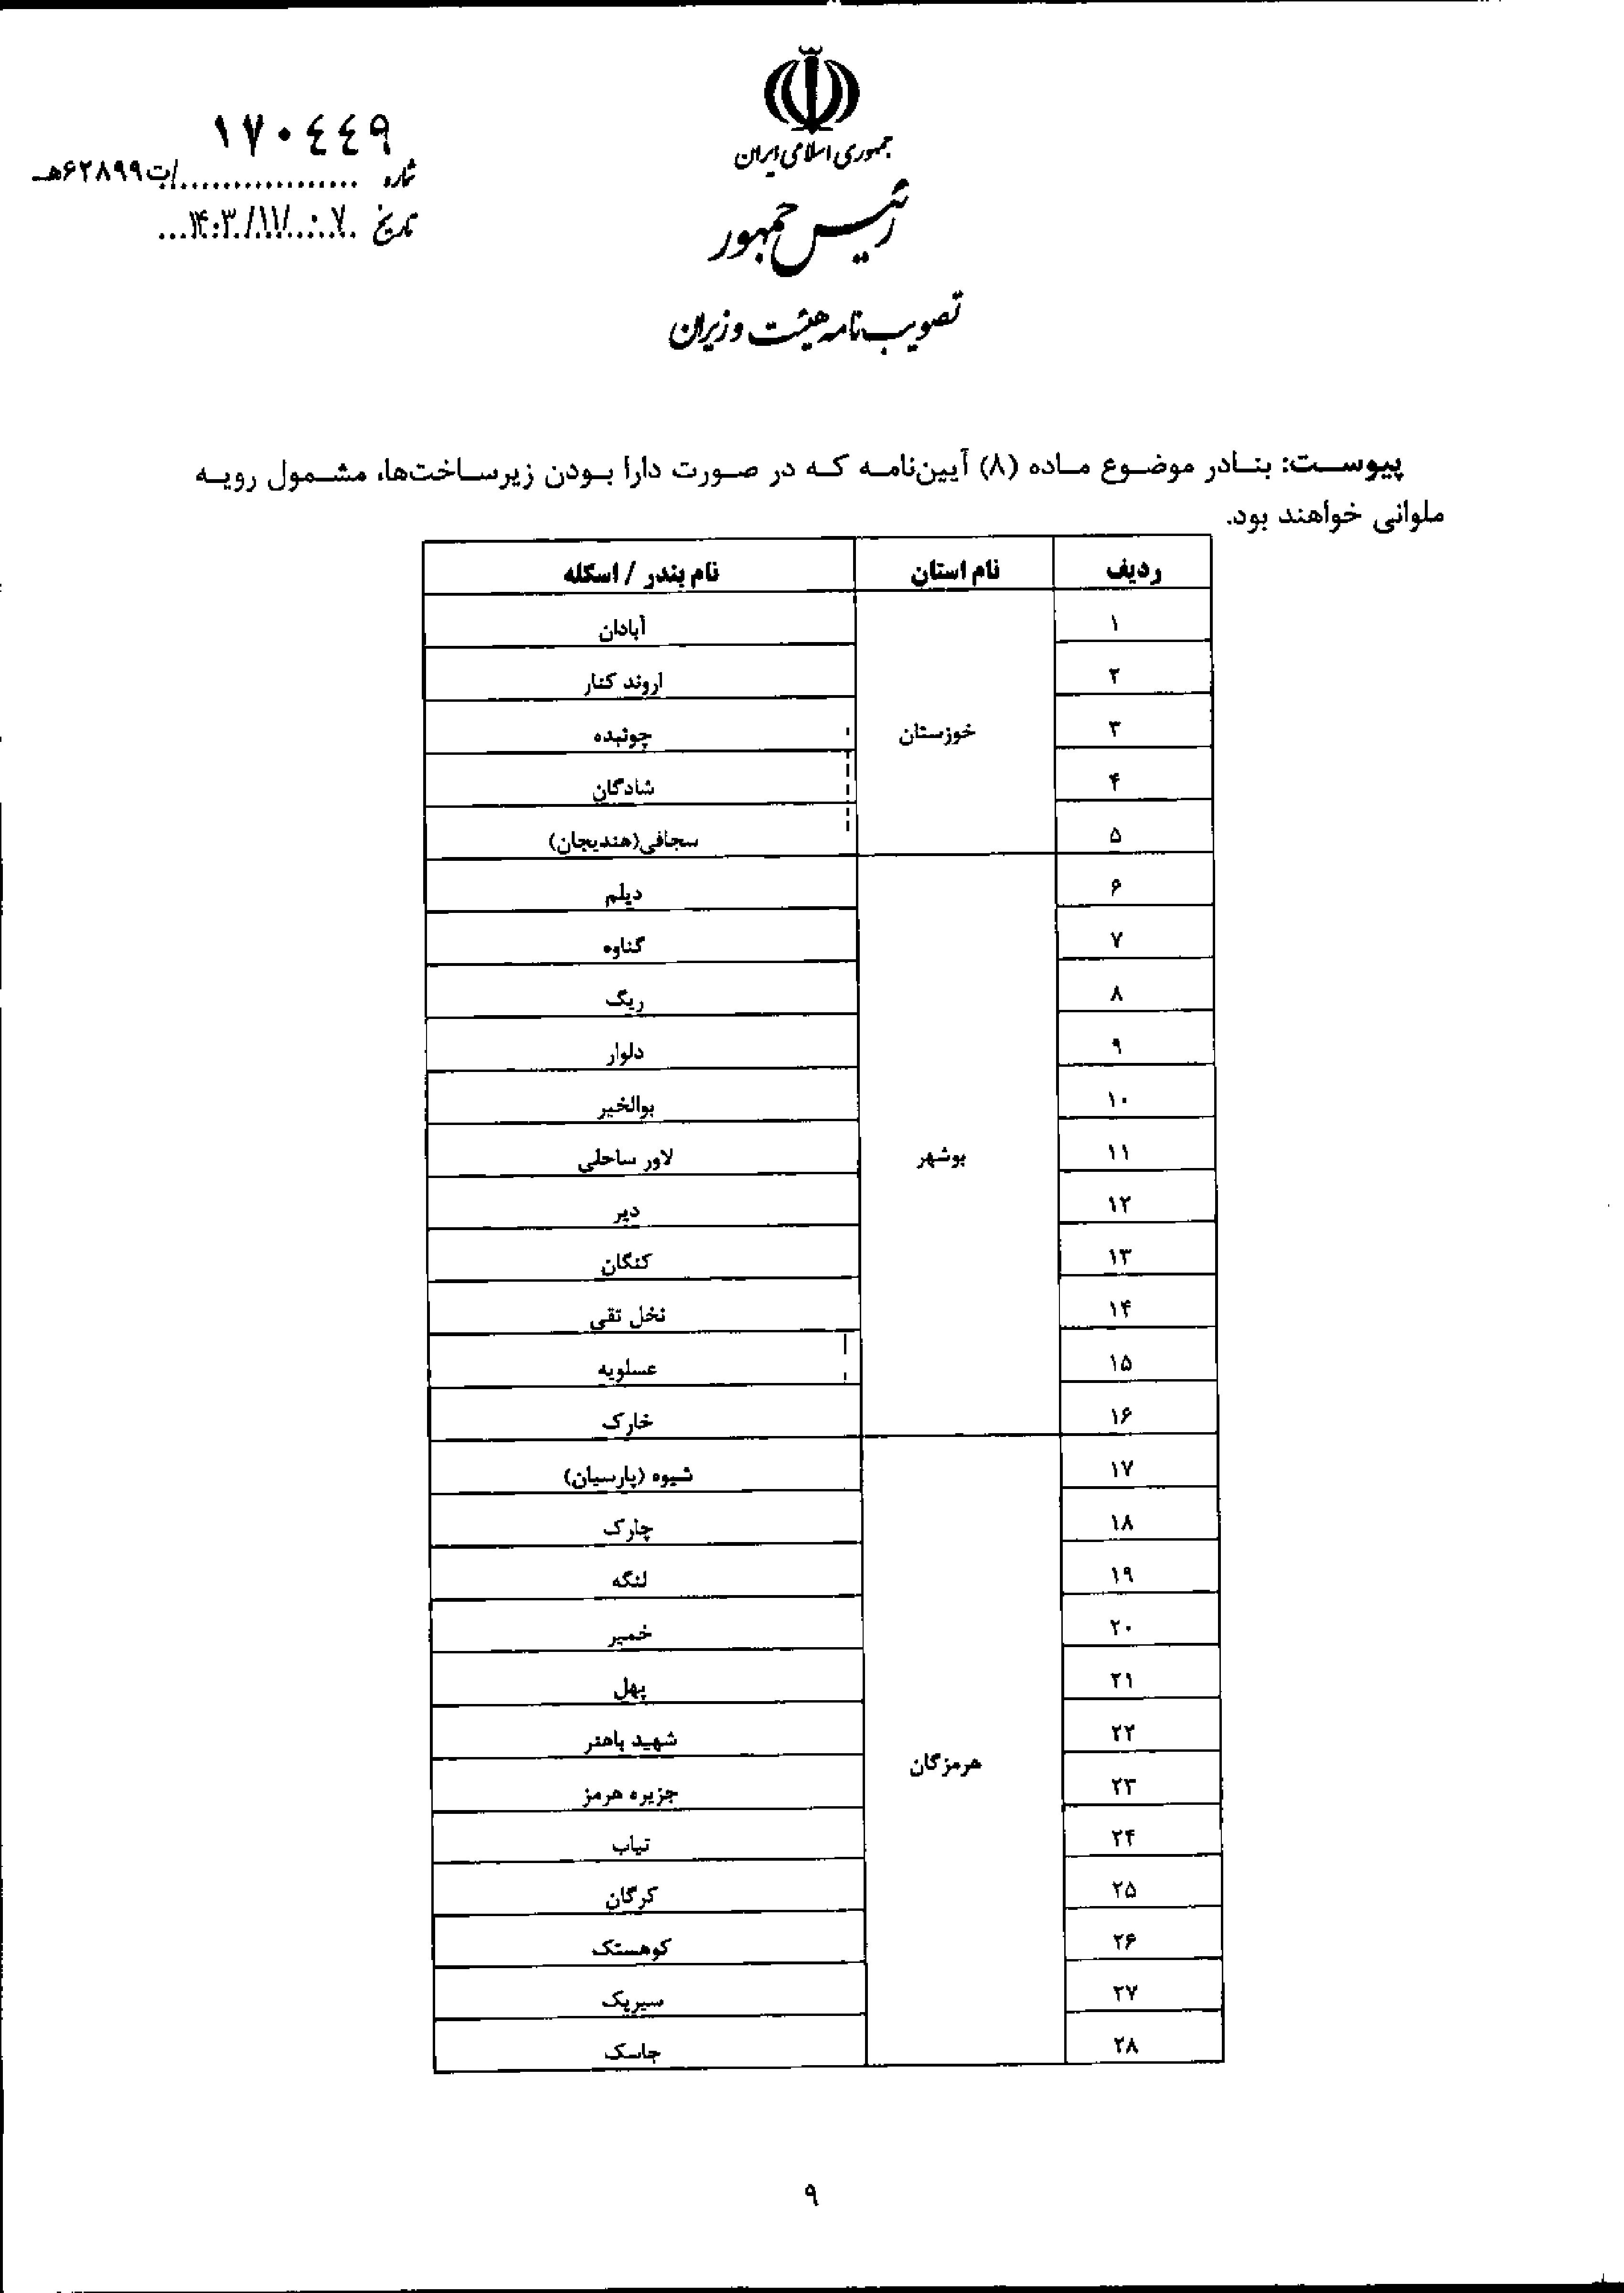 جمهوری اسلامی ایران
رئیس جمهور
تصویب نامه هیئت وزیران
۱۷۰۴۴۹
شماره .................../ت۶۲۸۹۹هـ
تاریخ ۱۴۰۳/۱۱/۰۷
پیوست: بنادر موضوع ماده (۸) آیین‌نامه که در صورت دارا بودن زیرساخت‌ها، مشمول رویه
ملوانی خواهند بود.
ردیف نام استان نام بندر / اسکله
۱ آبادان
۲ اروند کنار
۳ خوزستان چوئبده
۴ شادگان
۵ سجافی(هندیجان)
۶ دیلم
۷ گناوه
۸ ریگ
۹ دلوار
۱۰ بوالخیر
۱۱ بوشهر لاور ساحلی
۱۲ دیر
۱۳ کنگان
۱۴ نخل تقی
۱۵ عسلویه
۱۶ خارک
۱۷ شیوه (پارسیان)
۱۸ چارک
۱۹ لنگه
۲۰ خمیر
۲۱ پهل
۲۲ شهید باهنر
هرمزگان
۲۳ جزیره هرمز
۲۴ تیاب
۲۵ کرگان
۲۶ کوهستک
۲۷ سیریک
۲۸ جاسک
۹